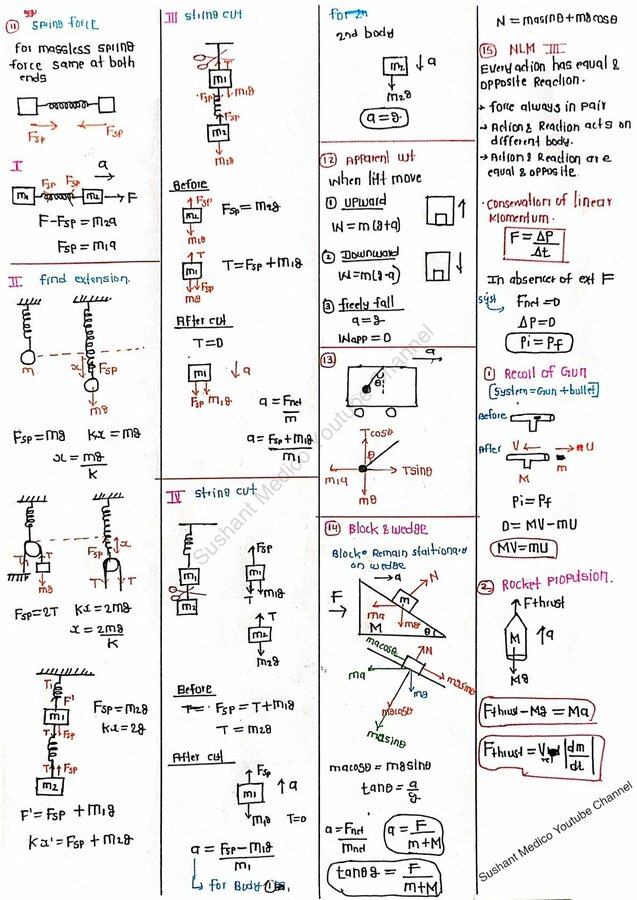 11 Spring force
for massless spring
force same at both
ends
Fsp Fsp
I
a
Fsp Fsp
m1 m2 F
F-Fsp = m2a
Fsp = m1a
II find extension.
x Fsp
m
mg
Fsp = mg Kx = mg
x = mg/K
Fsp x
T T T T
mg
Fsp = 2T Kx = 2mg
x = 2mg/K
T1
F'
m1
T Fsp
T Fsp
m2
Fsp = m2g
Kx = 2g
F' = Fsp + m1g
Kx' = Fsp + m2g
III string cut
T
m1
Fsp m1g
Fsp
m2
m2g
Before
Fsp
m2
mg
Fsp = m2g
T
m1
Fsp
mg
T = Fsp + m1g
After cut
T = 0
m1 a
Fsp m1g
a = Fnet/m
a = Fsp + m1g/m1
IV string cut
m1
m2
Fsp
m1
T m1g
T
m2
m2g
Before
T= Fsp = T + m1g
T = m2g
After cut
Fsp
m1 a
m1g T=0
a = Fsp - m1g/m1
for Body
for 2n
2nd body
m2 a
m2g
a = g
12 Apparent wt
When lift move
1 Upward
W = m(g+a)
2 Downward
W = m(g-a)
3 freely fall
a = g
Wapp = 0
13
a
θ
Tcosθ
θ
m1a Tsinθ
mg
14 Block & wedge
Block Remain stationary
on wedge
a
N
F
m
ma
mg
M θ
macosθ N
ma mgsinθ
mg
mgcosθ
masinθ
macosθ = mgsinθ
tanθ = a/g
a = Fnet/mnet a = F/m+M
tanθg = F/m+M
N = masinθ + mgcosθ
15 NLM III
Every action has equal &
opposite Reaction.
force always in pair
Action & Reaction acts on
different body.
Action & Reaction are
equal & opposite.
Conservation of linear
Momentum.
F = ΔP/Δt
In absence of ext F
syst Fnet = 0
ΔP = 0
Pi = Pf
1 Recoil of Gun
[System = Gun + bullet]
Before
After V U
M m
Pi = Pf
0 = MV - mU
MV = mU
2 Rocket propulsion.
Fthrust
M a
Mg
Fthrust - Mg = Ma
Fthrust = Vrel |dm/dt|
Sushant Medico Youtube Channel
Sushant Medico Youtube Channel